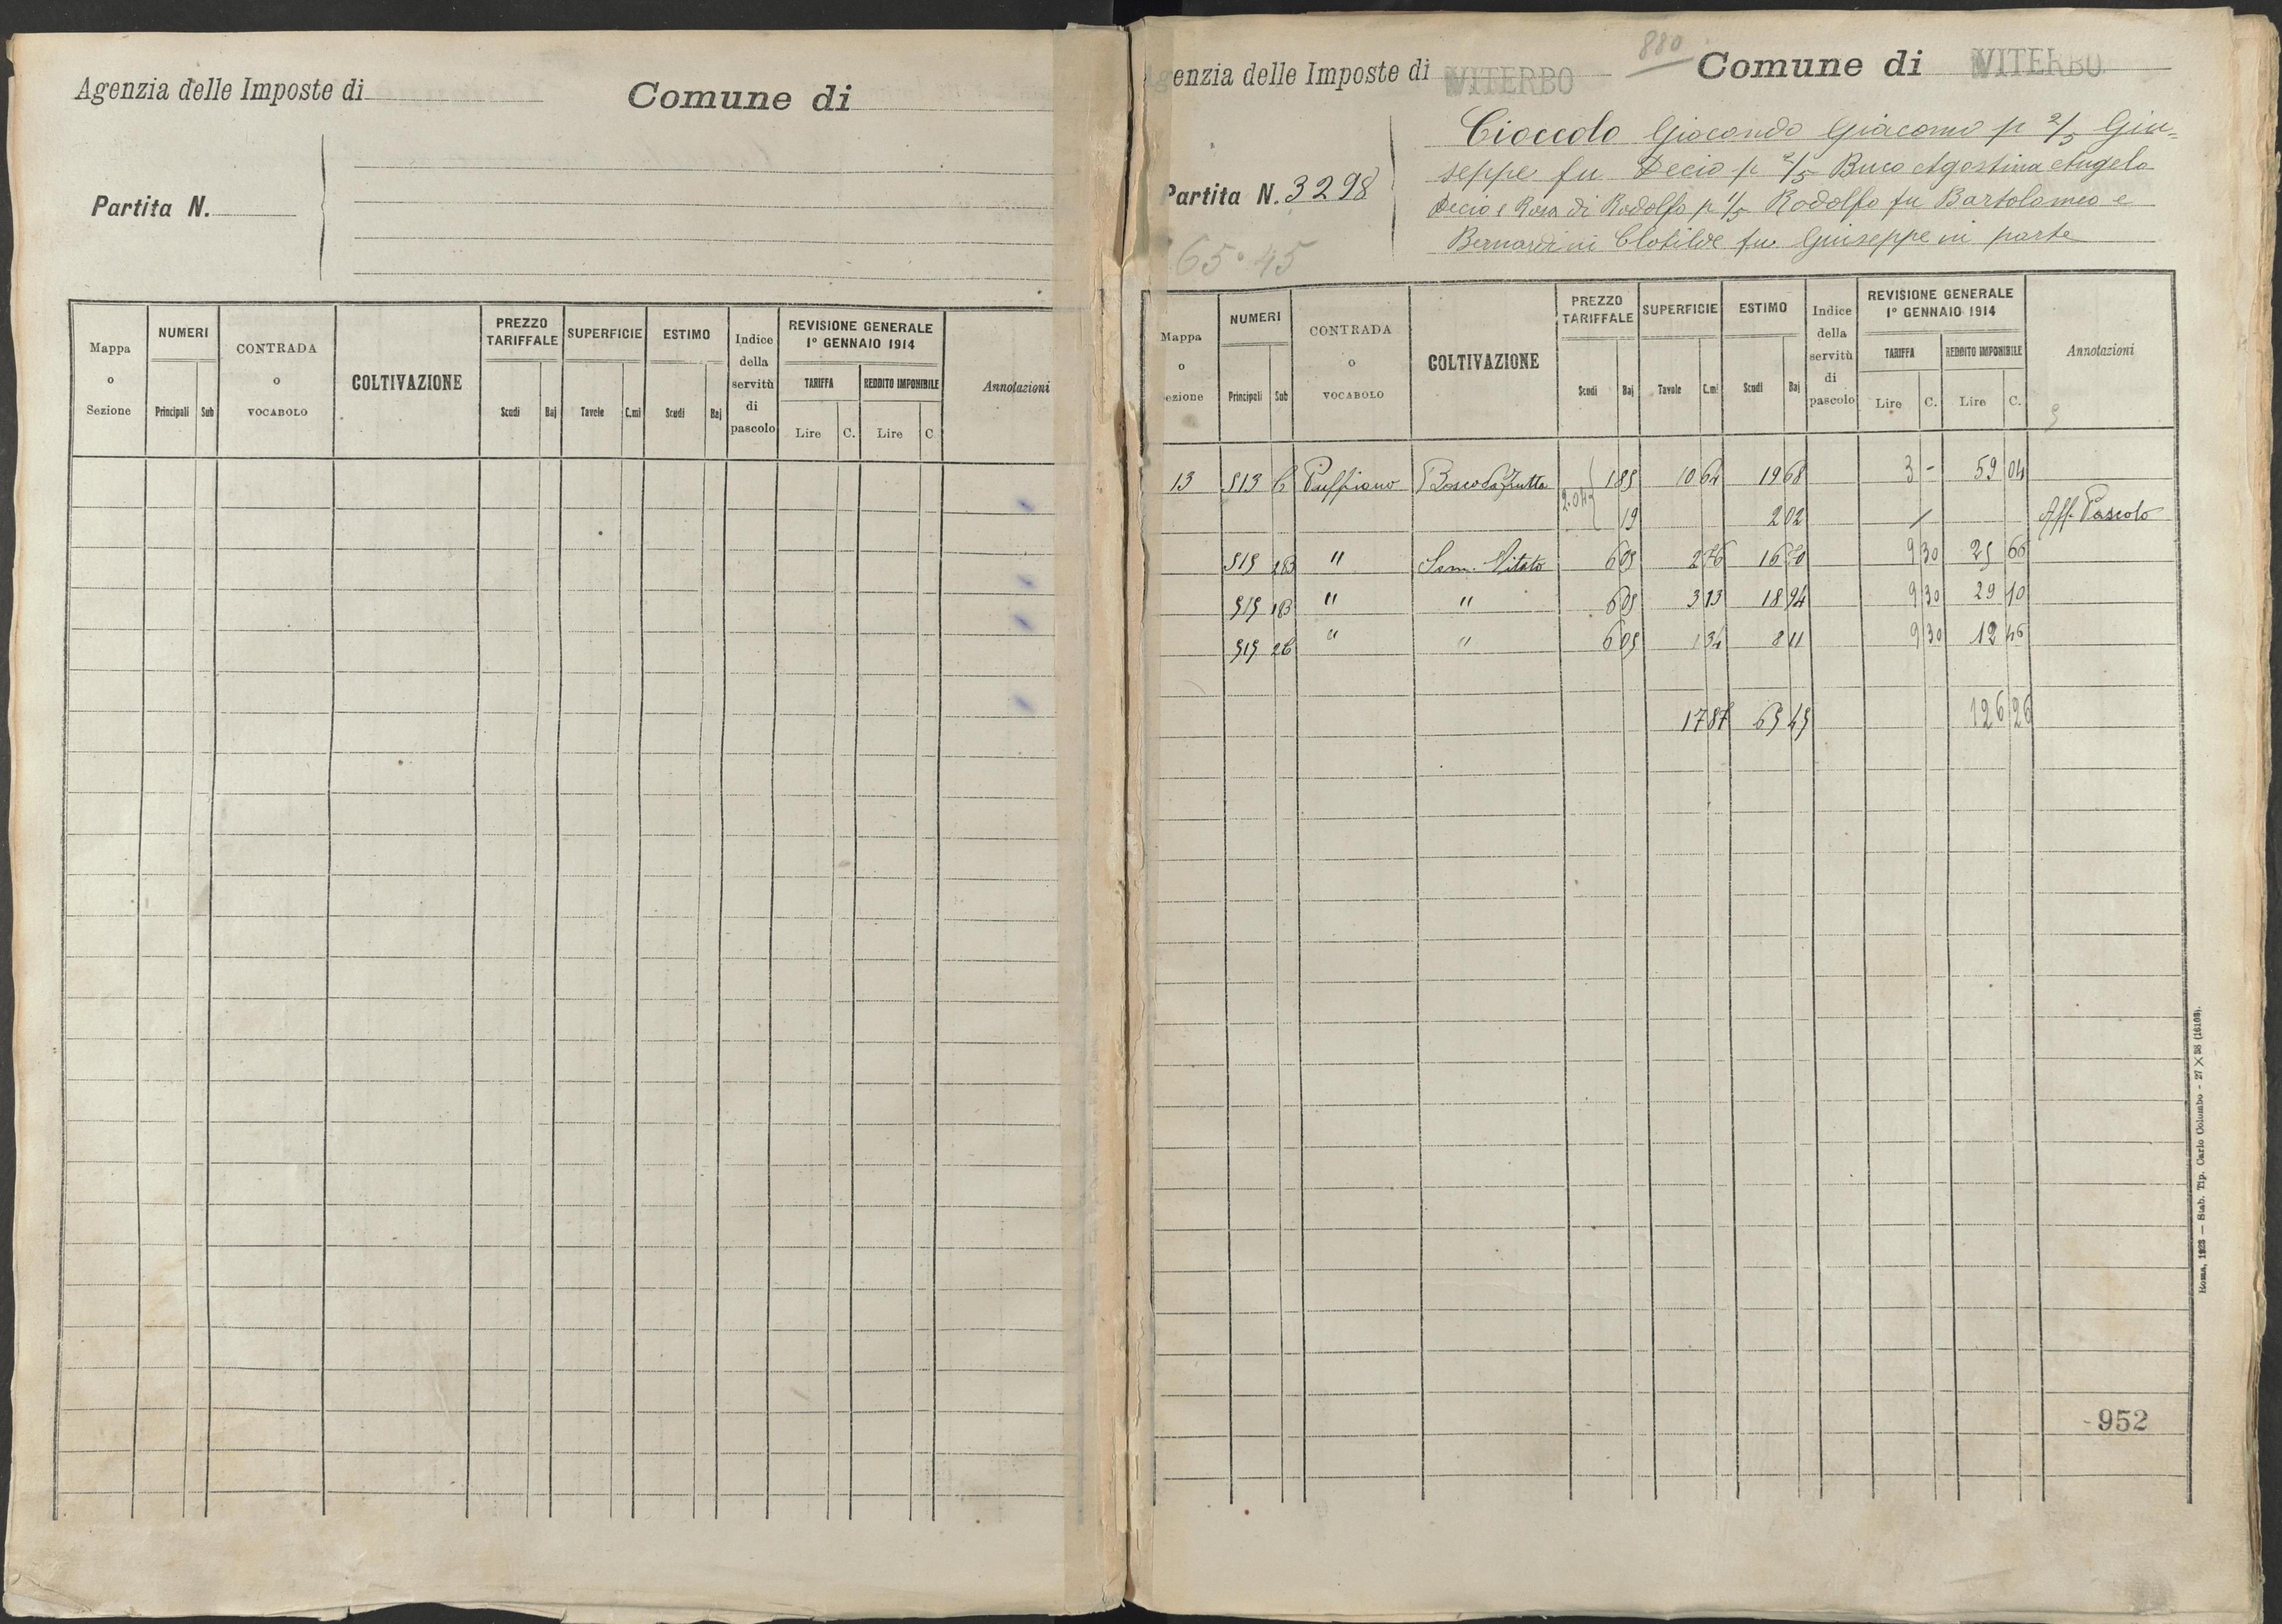 Agenzia delle Imposte di
Comune di
Partita N.
Mappa o Sezione
NUMERI
Principali Sub
CONTRADA o VOCABOLO
COLTIVAZIONE
PREZZO TARIFFALE
Scudi Baj
SUPERFICIE
Tavole C.mi
ESTIMO
Scudi Baj
Indice della servitù di pascolo
REVISIONE GENERALE 1º GENNAIO 1914
TARIFFA
Lire C.
REDDITO IMPONIBILE
Lire C
Annotazioni
880
Agenzia delle Imposte di VITERBO Comune di VITERBO
Cioccolo Giocondo Giacomo p 2/5 Giu=
seppe fu Decio p 2/5 Buco Agostina Angela
Partita N. 3298
Decio e Rosa di Rodolfo p 1/5 Rodolfo fu Bartolomeo e
Bernardini Clotilde fu Giuseppe in parte
65.45
Mappa o ezione
NUMERI
Principali Sub
CONTRADA o VOCABOLO
COLTIVAZIONE
PREZZO TARIFFALE
Scudi Baj
SUPERFICIE
Tavole C.mi
ESTIMO
Scudi Baj
Indice della servitù di pascolo
REVISIONE GENERALE 1º GENNAIO 1914
TARIFFA
Lire C.
REDDITO IMPONIBILE
Lire C.
Annotazioni
13 513 Bosco da frutto 1 85 10 64 19 68 3 - 59 04
2.04 19 2 02 / Aff. Pascolo
515 2B " Sem. Vitato 6 05 2 76 16 70 9 30 25 66
515 1B " " 6 05 3 13 18 94 9 30 29 10
515 " " 6 05 1 34 8 11 9 30 12 46
17 87 65 45 126 26
952
Roma, 1923 — Stab. Tip. Carlo Colombo - 27 X 38 (16108).